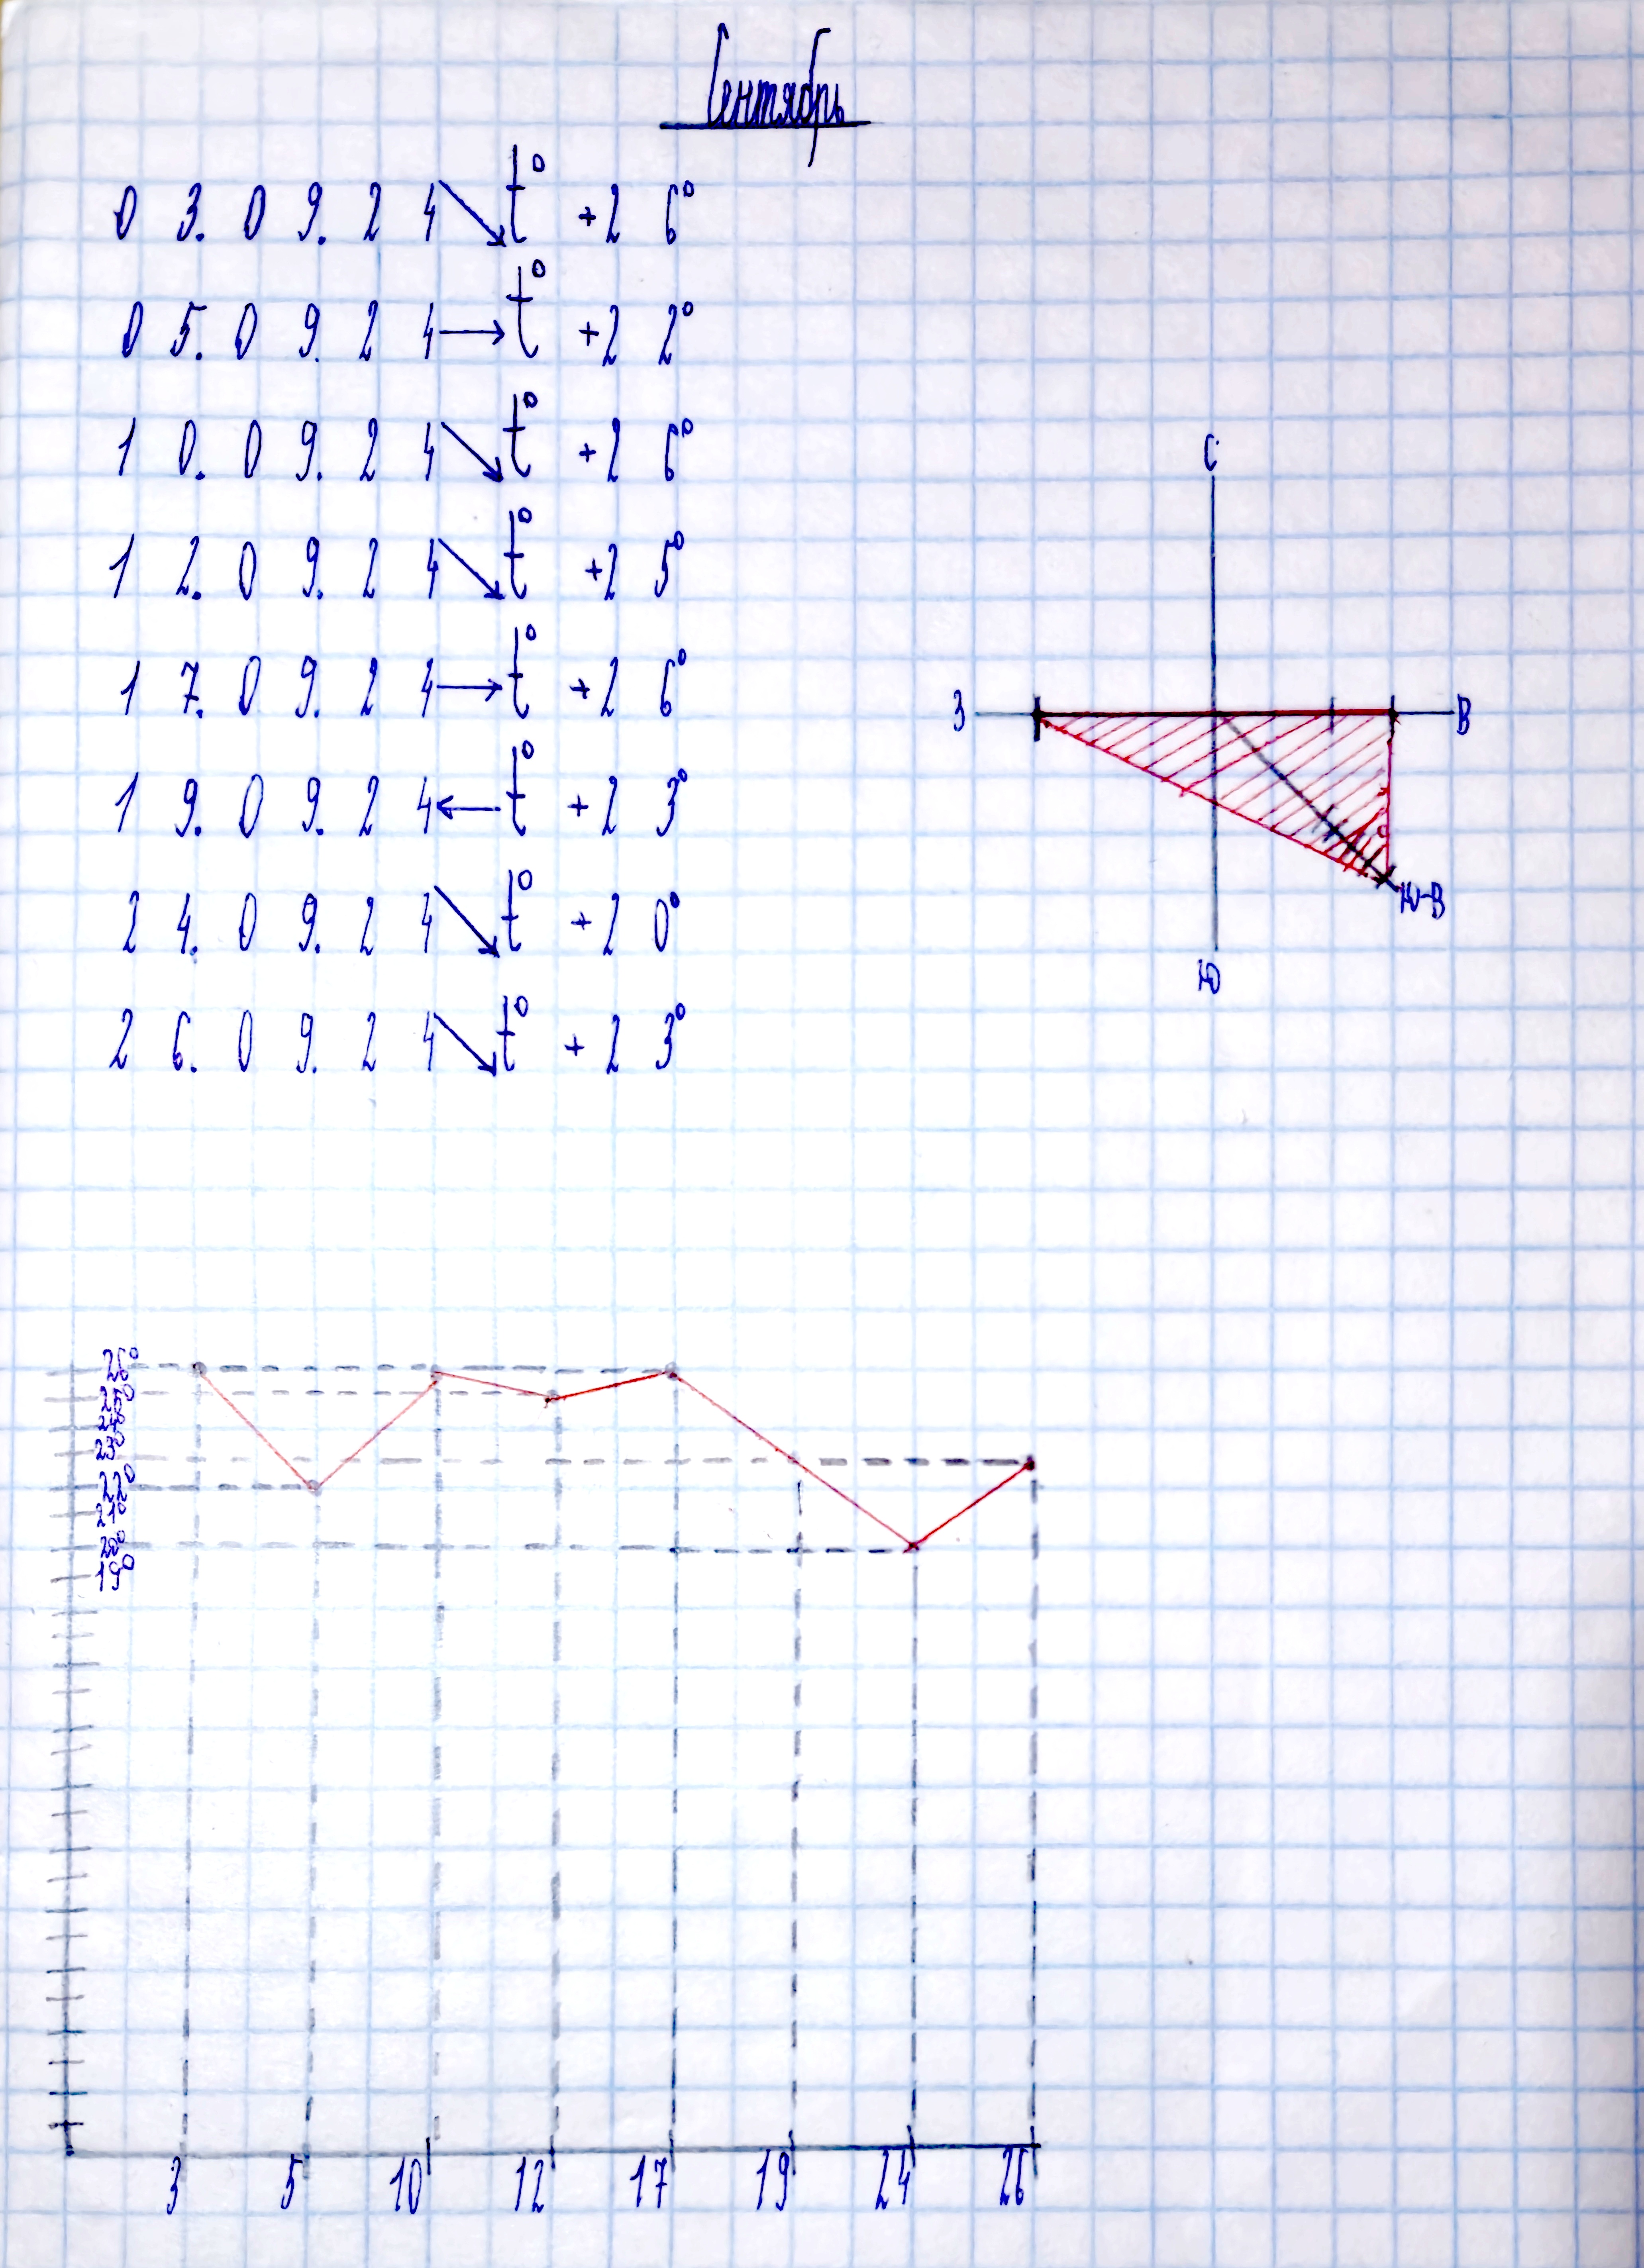 Сентябрь
03.09.24↘t° +26°
05.09.24→t° +22°
10.09.24↘t° +26°
12.09.24↘t° +25°
17.09.24→t° +26°
19.09.24←t° +23°
24.09.24↘t° +20°
26.09.24↘t° +23°
С
З В
Ю-В
Ю
26°
25°
24°
23°
22°
21°
20°
19°
3 5 10 12 17 19 24 26